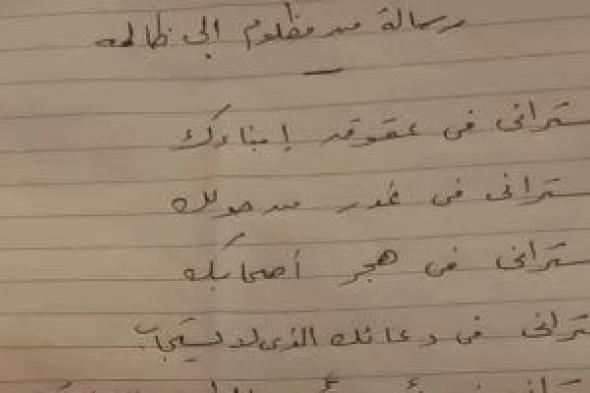 رسالة من مظلوم إلى ظالمه
ستراني في عقوق إبناءك
ستراني في غدر من حولك
ستراني في هجر أصحابك
ستراني في دعائك الذي لا يستجاب